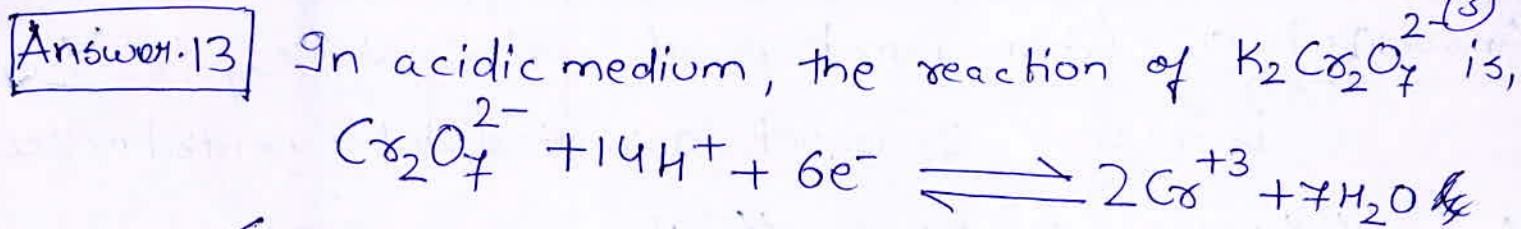 Answer.13 In acidic medium, the reaction of K₂Cr₂O₇²⁻ is,
Cr₂O₇²⁻ + 14H⁺ + 6e⁻ ⇌ 2Cr⁺³ + 7H₂O